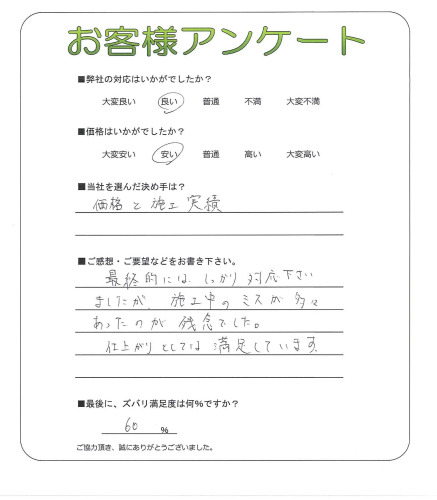 お客様アンケート
■弊社の対応はいかがでしたか？
大変良い 良い 普通 不満 大変不満
■価格はいかがでしたか？
大変安い 安い 普通 高い 大変高い
■当社を選んだ決め手は？
価格と施工実績
■ご感想・ご要望などをお書き下さい。
最終的には、しっかり対応下さい
ましたが、施工中のミスが多々
あったのが残念でした。
仕上がりとしては満足しています。
■最後に、ズバリ満足度は何%ですか？
60 %
ご協力頂き、誠にありがとうございました。